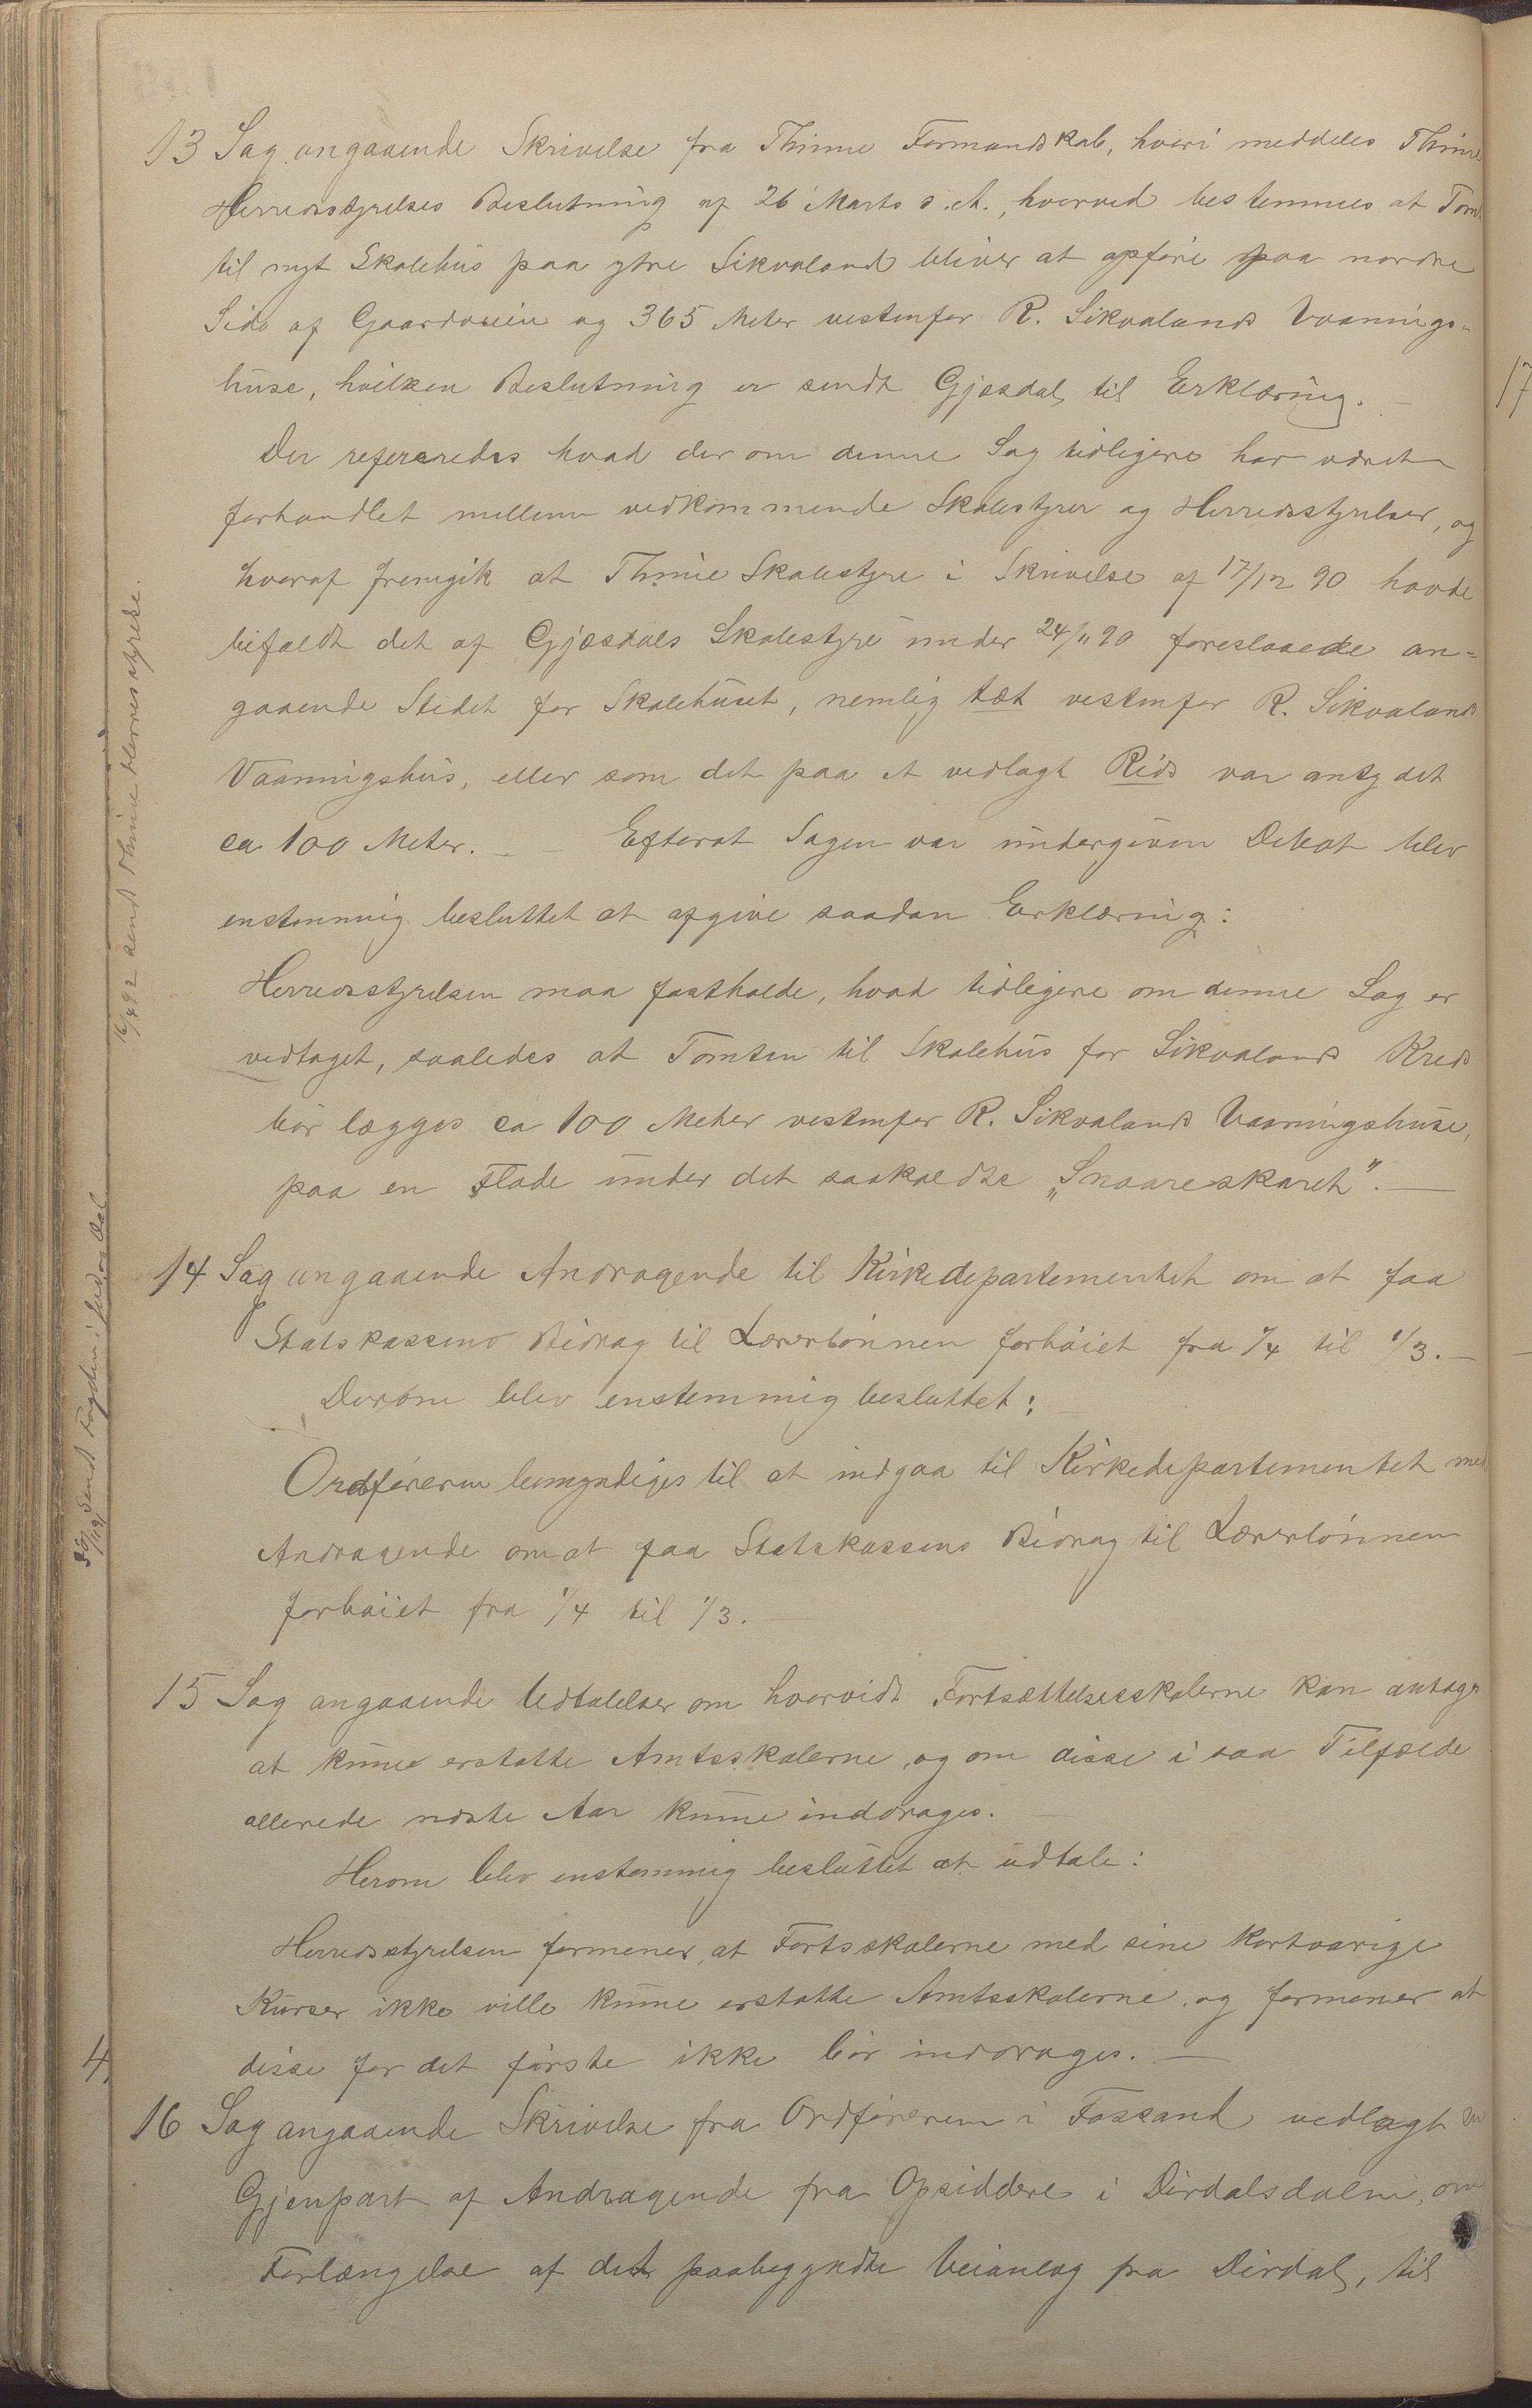 13 Sag angaaende Skrivelse fra Thime Formandskab, hvori meddeles Thime
Herredsstyrelses Beslutning af 26 Marts d. A., hvorved bestemmes at Tomt
til nyt Skolehus paa ytre Sikvaland bliver at opføre paa nordre
Side af Gaardveien og 365 Meter vestenfor R. Sikvalands Vaanings-
huse, hvilken Beslutning er sendt Gjesdal til Erklæring. —
Der refereredes hvad der om denne Sag tidligere har været
forhandlet mellem vedkommende Skolestyrer og Herredsstyrelser, og
hvoraf fremgik at Thime Skolestyre i Skrivelse af 17/12 90 havde
bifaldt det af Gjæsdals Skolestyre under 24/11 90 foreslaaede an-
gaaende Stedet for Skolehuset, nemlig tæt vestenfor R. Sikvalands
Vaaningshus, eller som det paa et vedlagt Rids var antydet
ca 100 Meter. — Efterat Sagen var undergiven Debat blev
enstemmig besluttet at afgive saadan Erklæring:
Herredsstyrelsen maa fastholde, hvad tidligere om denne Sag er
vedtaget, saaledes at Tomten til Skolehus for Sikvalands Kreds
bør lægges ca 100 Meter vestenfor R. Sikvalands Vaaningshuse,
paa en Flade under det saakaldte „Snaareskaret". —
16/4 92 sendt Thime Herredsstyrelse.
14 Sag angaaende Andragende til Kirkedepartementet om at faa
Statskassens Bidrag til Lærerlønnen forhøiet fra 1/4 til 1/3. —
Derom blev enstemmig besluttet:
Ordføreren bemyndiges til at indgaa til Kirkedepartementet med
Andragende om at faa Statskassens Bidrag til Lærerlønnen
forhøiet fra 1/4 til 1/3. —
sendt Fogden i Jæd. og Dal.
15 Sag angaaende Udtalelser om hvorvidt Fortsættelsesskolerne kan antages
at kunne erstatte Amtsskolerne, og om disse i saa Tilfælde
allerede næste Aar kunne inddrages. —
Herom blev enstemmig besluttet at udtale:
Herredsstyrelsen formener, at Fortsskolerne med sine kortvarige
Kurser ikke ville kunne erstatte Amtsskolerne, og formener at
disse for det første ikke bør inddrages. —
4.
16 Sag angaaende Skrivelse fra Ordføreren i Fossand vedlagt en
Gjenpart af Andragende fra Opsiddere i Dirdalsdalen, om
Forlængelse af det paabegyndte Veianlæg fra Dirdal, til
17